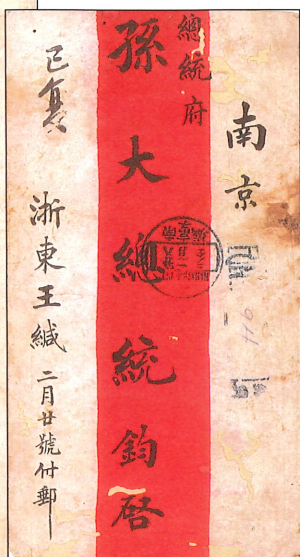 南京
總統府
孫大總統鈞啓
浙東王緘 二月廿號付郵
已復